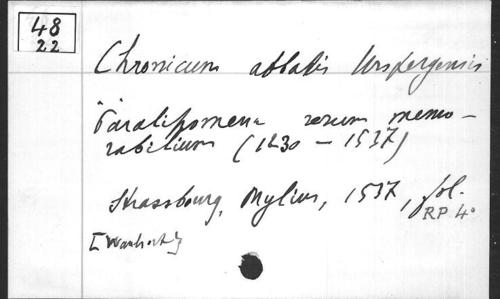 48
22
Chronicum abbatis Urspergensis
Paralipomena rerum memo-
rabilium (1230 - 1537)
Strassbourg, Mylius, 1537, fol.
RP 4°